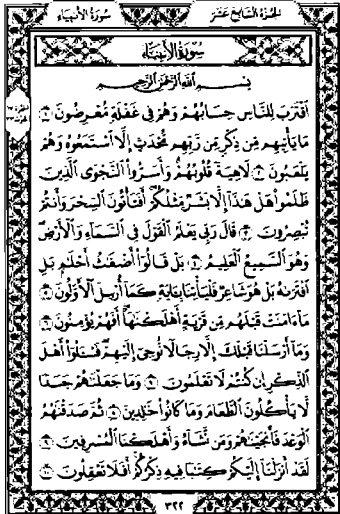 سُورَةُ الأَنبِيَاء
الجُزْءُ السَّابِعُ عَشَر
سُورَةُ الأَنْبِيَاءِ
بِسْمِ اللَّهِ الرَّحْمَٰنِ الرَّحِيمِ
ٱقْتَرَبَ لِلنَّاسِ حِسَابُهُمْ وَهُمْ فِي غَفْلَةٍ مُّعْرِضُونَ ١
مَا يَأْتِيهِم مِّن ذِكْرٍ مِّن رَّبِّهِم مُّحْدَثٍ إِلَّا ٱسْتَمَعُوهُ وَهُمْ
يَلْعَبُونَ ٢ لَاهِيَةً قُلُوبُهُمْ وَأَسَرُّوا۟ ٱلنَّجْوَى ٱلَّذِينَ
ظَلَمُوا۟ هَلْ هَٰذَآ إِلَّا بَشَرٌ مِّثْلُكُمْ أَفَتَأْتُونَ ٱلسِّحْرَ وَأَنتُمْ
تُبْصِرُونَ ٣ قَالَ رَبِّي يَعْلَمُ ٱلْقَوْلَ فِي ٱلسَّمَآءِ وَٱلْأَرْضِ
وَهُوَ ٱلسَّمِيعُ ٱلْعَلِيمُ ٤ بَلْ قَالُوٓا۟ أَضْغَٰثُ أَحْلَٰمٍ بَلِ
ٱفْتَرَىٰهُ بَلْ هُوَ شَاعِرٌ فَلْيَأْتِنَا بِـَٔايَةٍ كَمَآ أُرْسِلَ ٱلْأَوَّلُونَ ٥
مَآ ءَامَنَتْ قَبْلَهُم مِّن قَرْيَةٍ أَهْلَكْنَٰهَآ أَفَهُمْ يُؤْمِنُونَ ٦
وَمَآ أَرْسَلْنَا قَبْلَكَ إِلَّا رِجَالًا نُّوحِيٓ إِلَيْهِمْ فَسْـَٔلُوٓا۟ أَهْلَ
ٱلذِّكْرِ إِن كُنتُمْ لَا تَعْلَمُونَ ٧ وَمَا جَعَلْنَٰهُمْ جَسَدًا
لَّا يَأْكُلُونَ ٱلطَّعَامَ وَمَا كَانُوا۟ خَٰلِدِينَ ٨ ثُمَّ صَدَقْنَٰهُمُ
ٱلْوَعْدَ فَأَنجَيْنَٰهُمْ وَمَن نَّشَآءُ وَأَهْلَكْنَا ٱلْمُسْرِفِينَ ٩
لَقَدْ أَنزَلْنَآ إِلَيْكُمْ كِتَٰبًا فِيهِ ذِكْرُكُمْ أَفَلَا تَعْقِلُونَ ١٠
٣٢٢